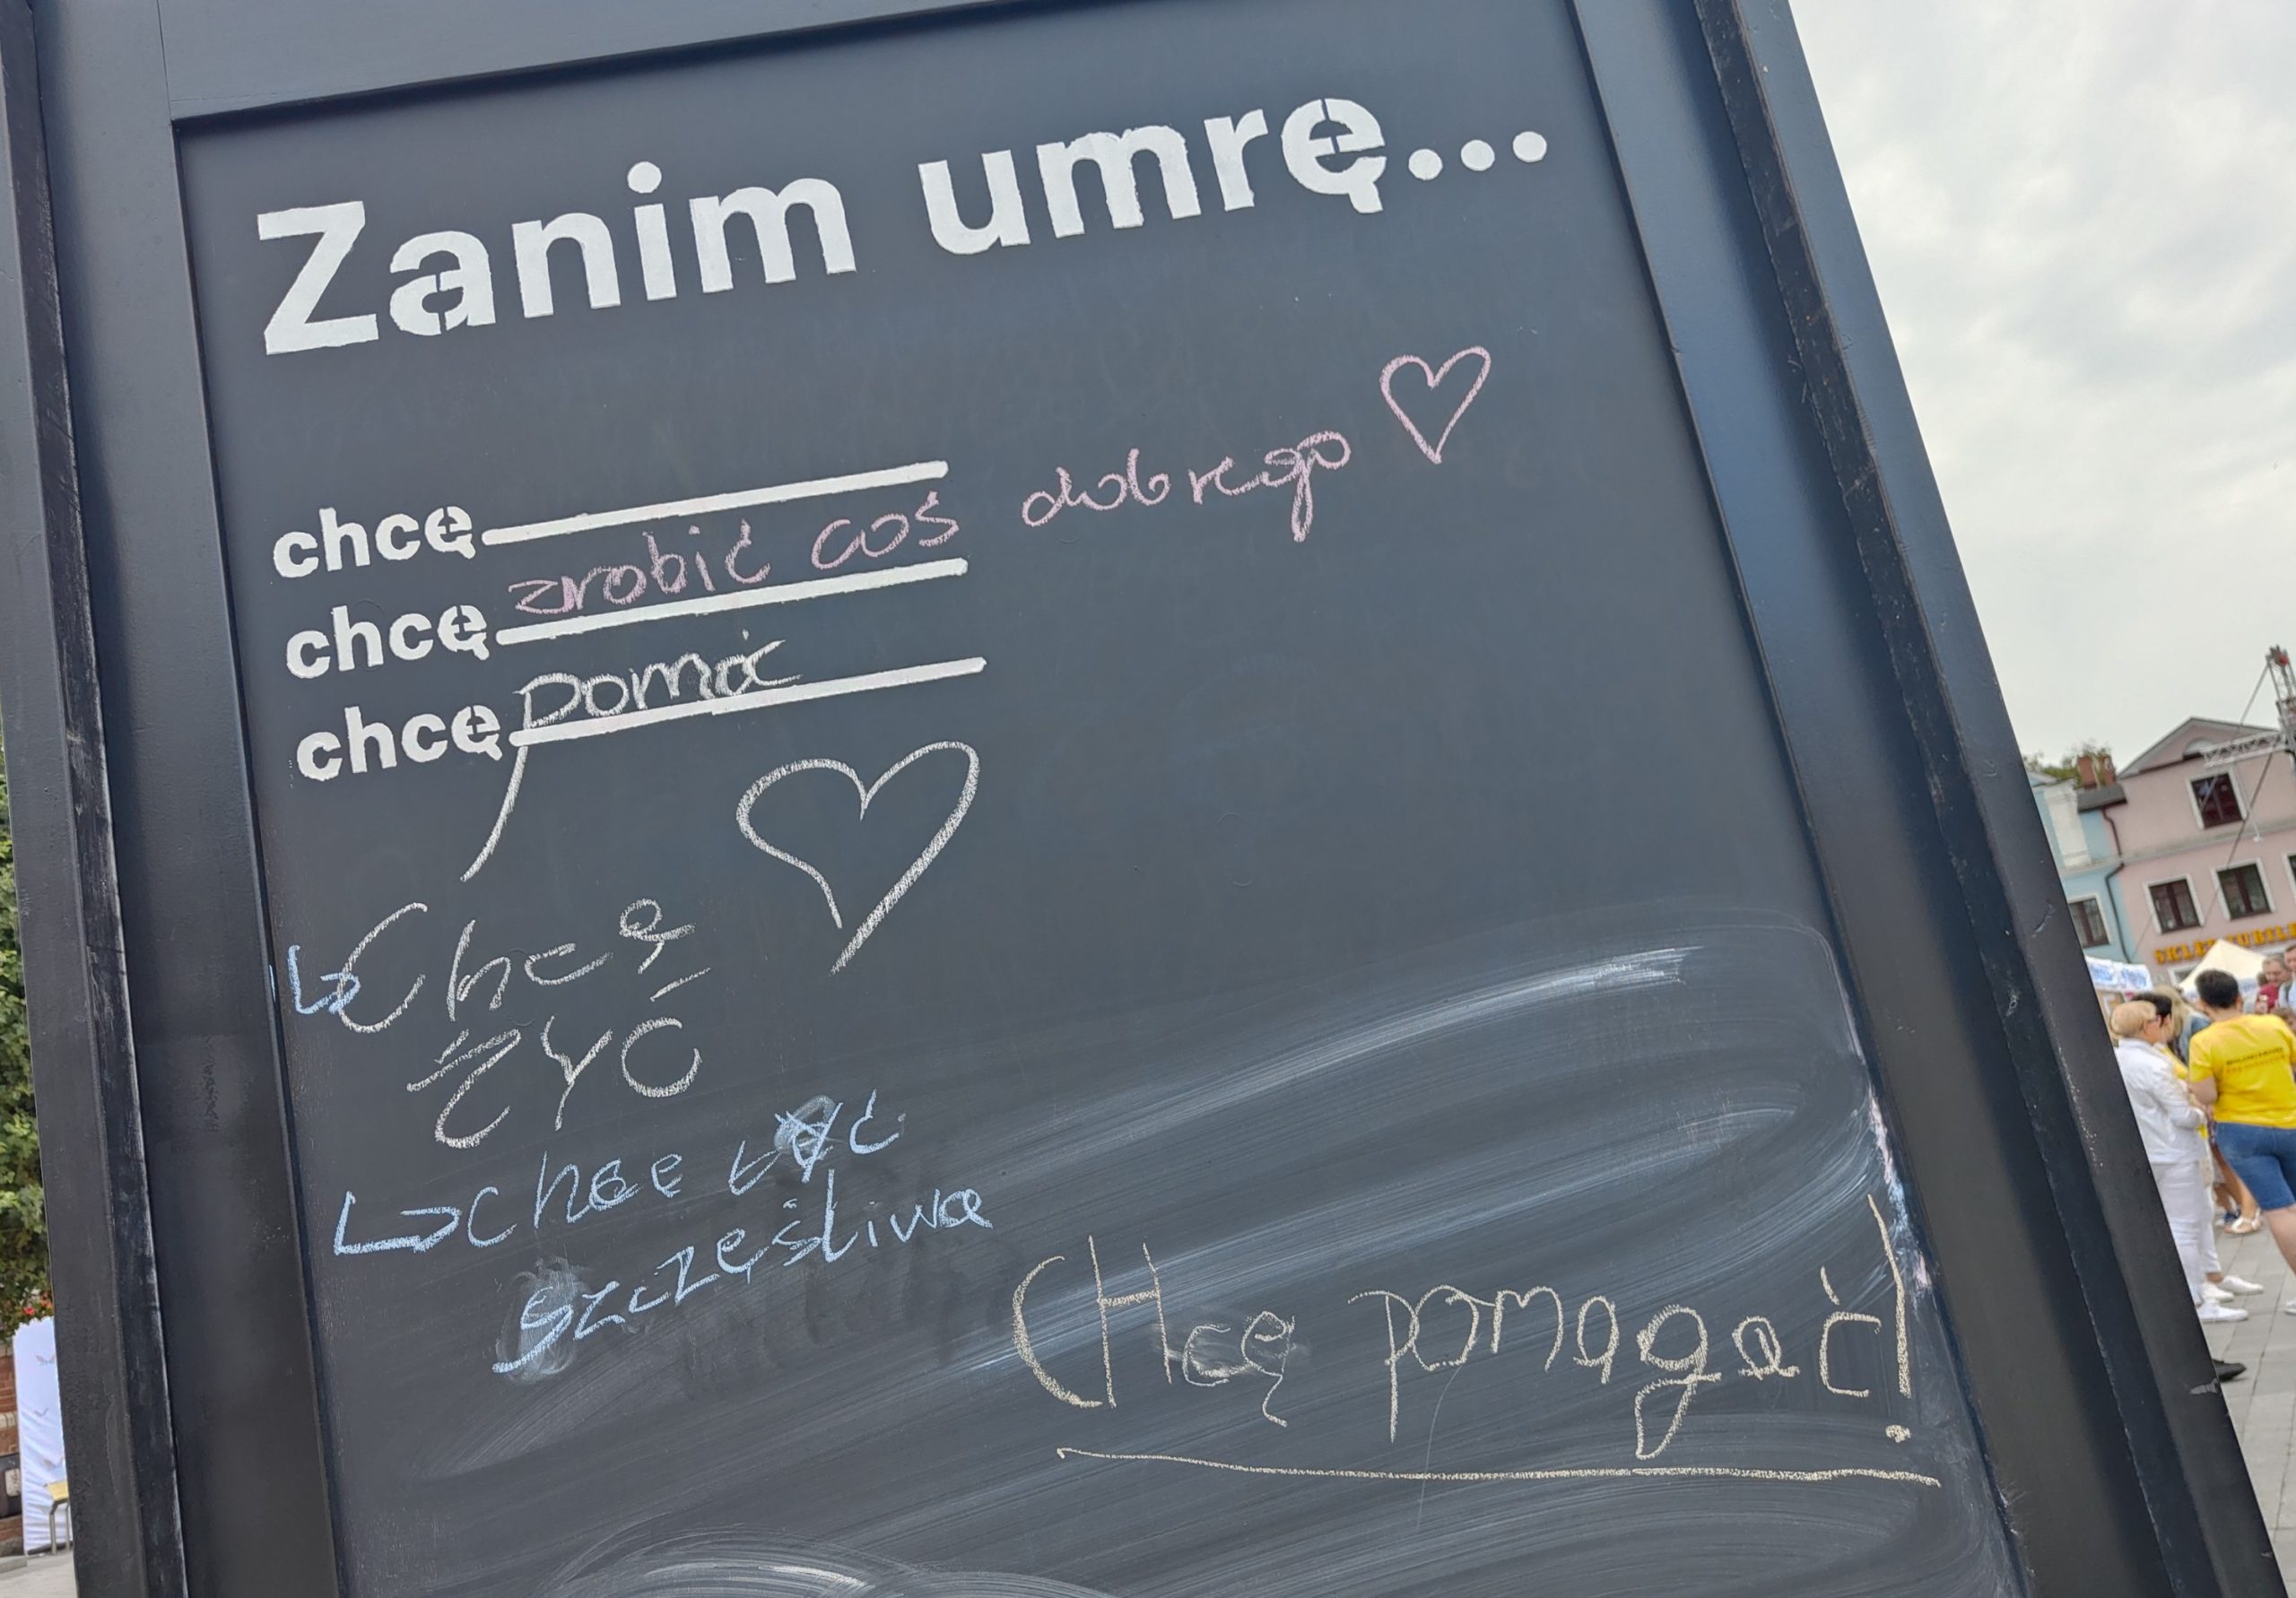 Zanim umrę...
chcę
chcę zrobić coś dobrego
chcę pomóc
Chcę
ŻYĆ
chcę być
szczęśliwa
CHcę pomagać!